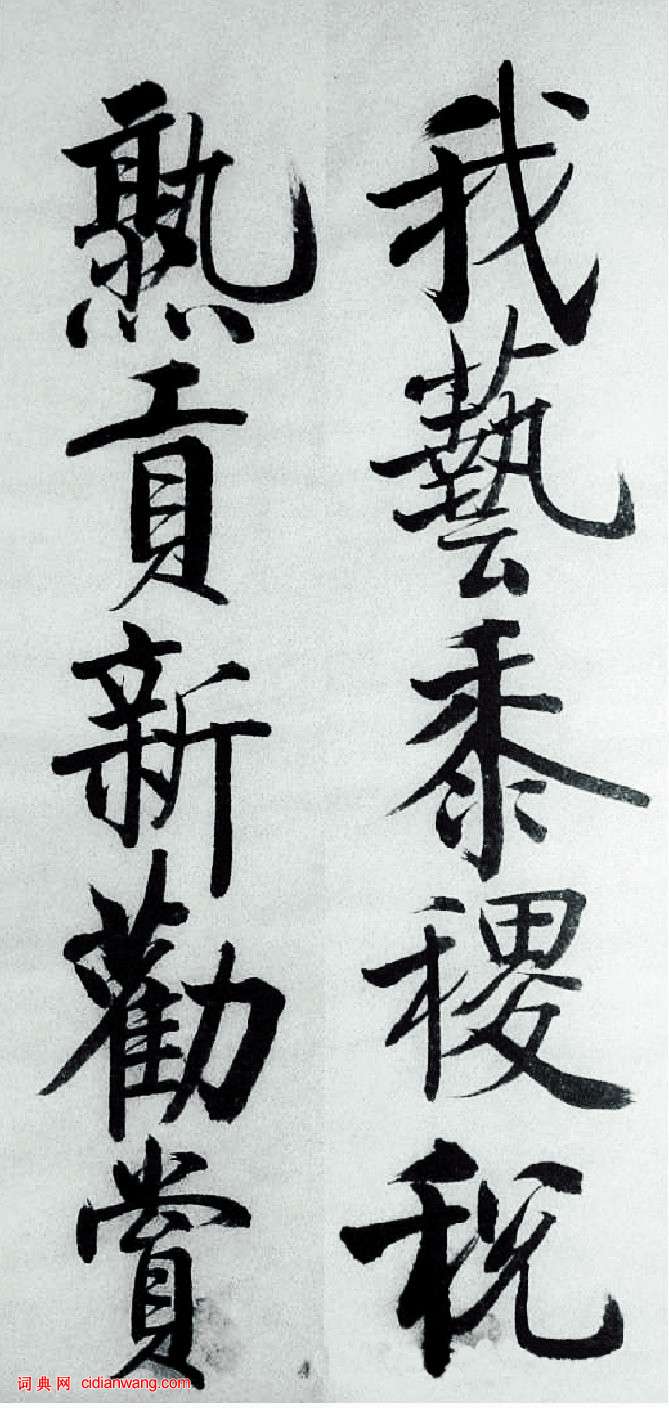 我藝黍稷稅
熟貢新勸賞
词典网 cidianwang.com